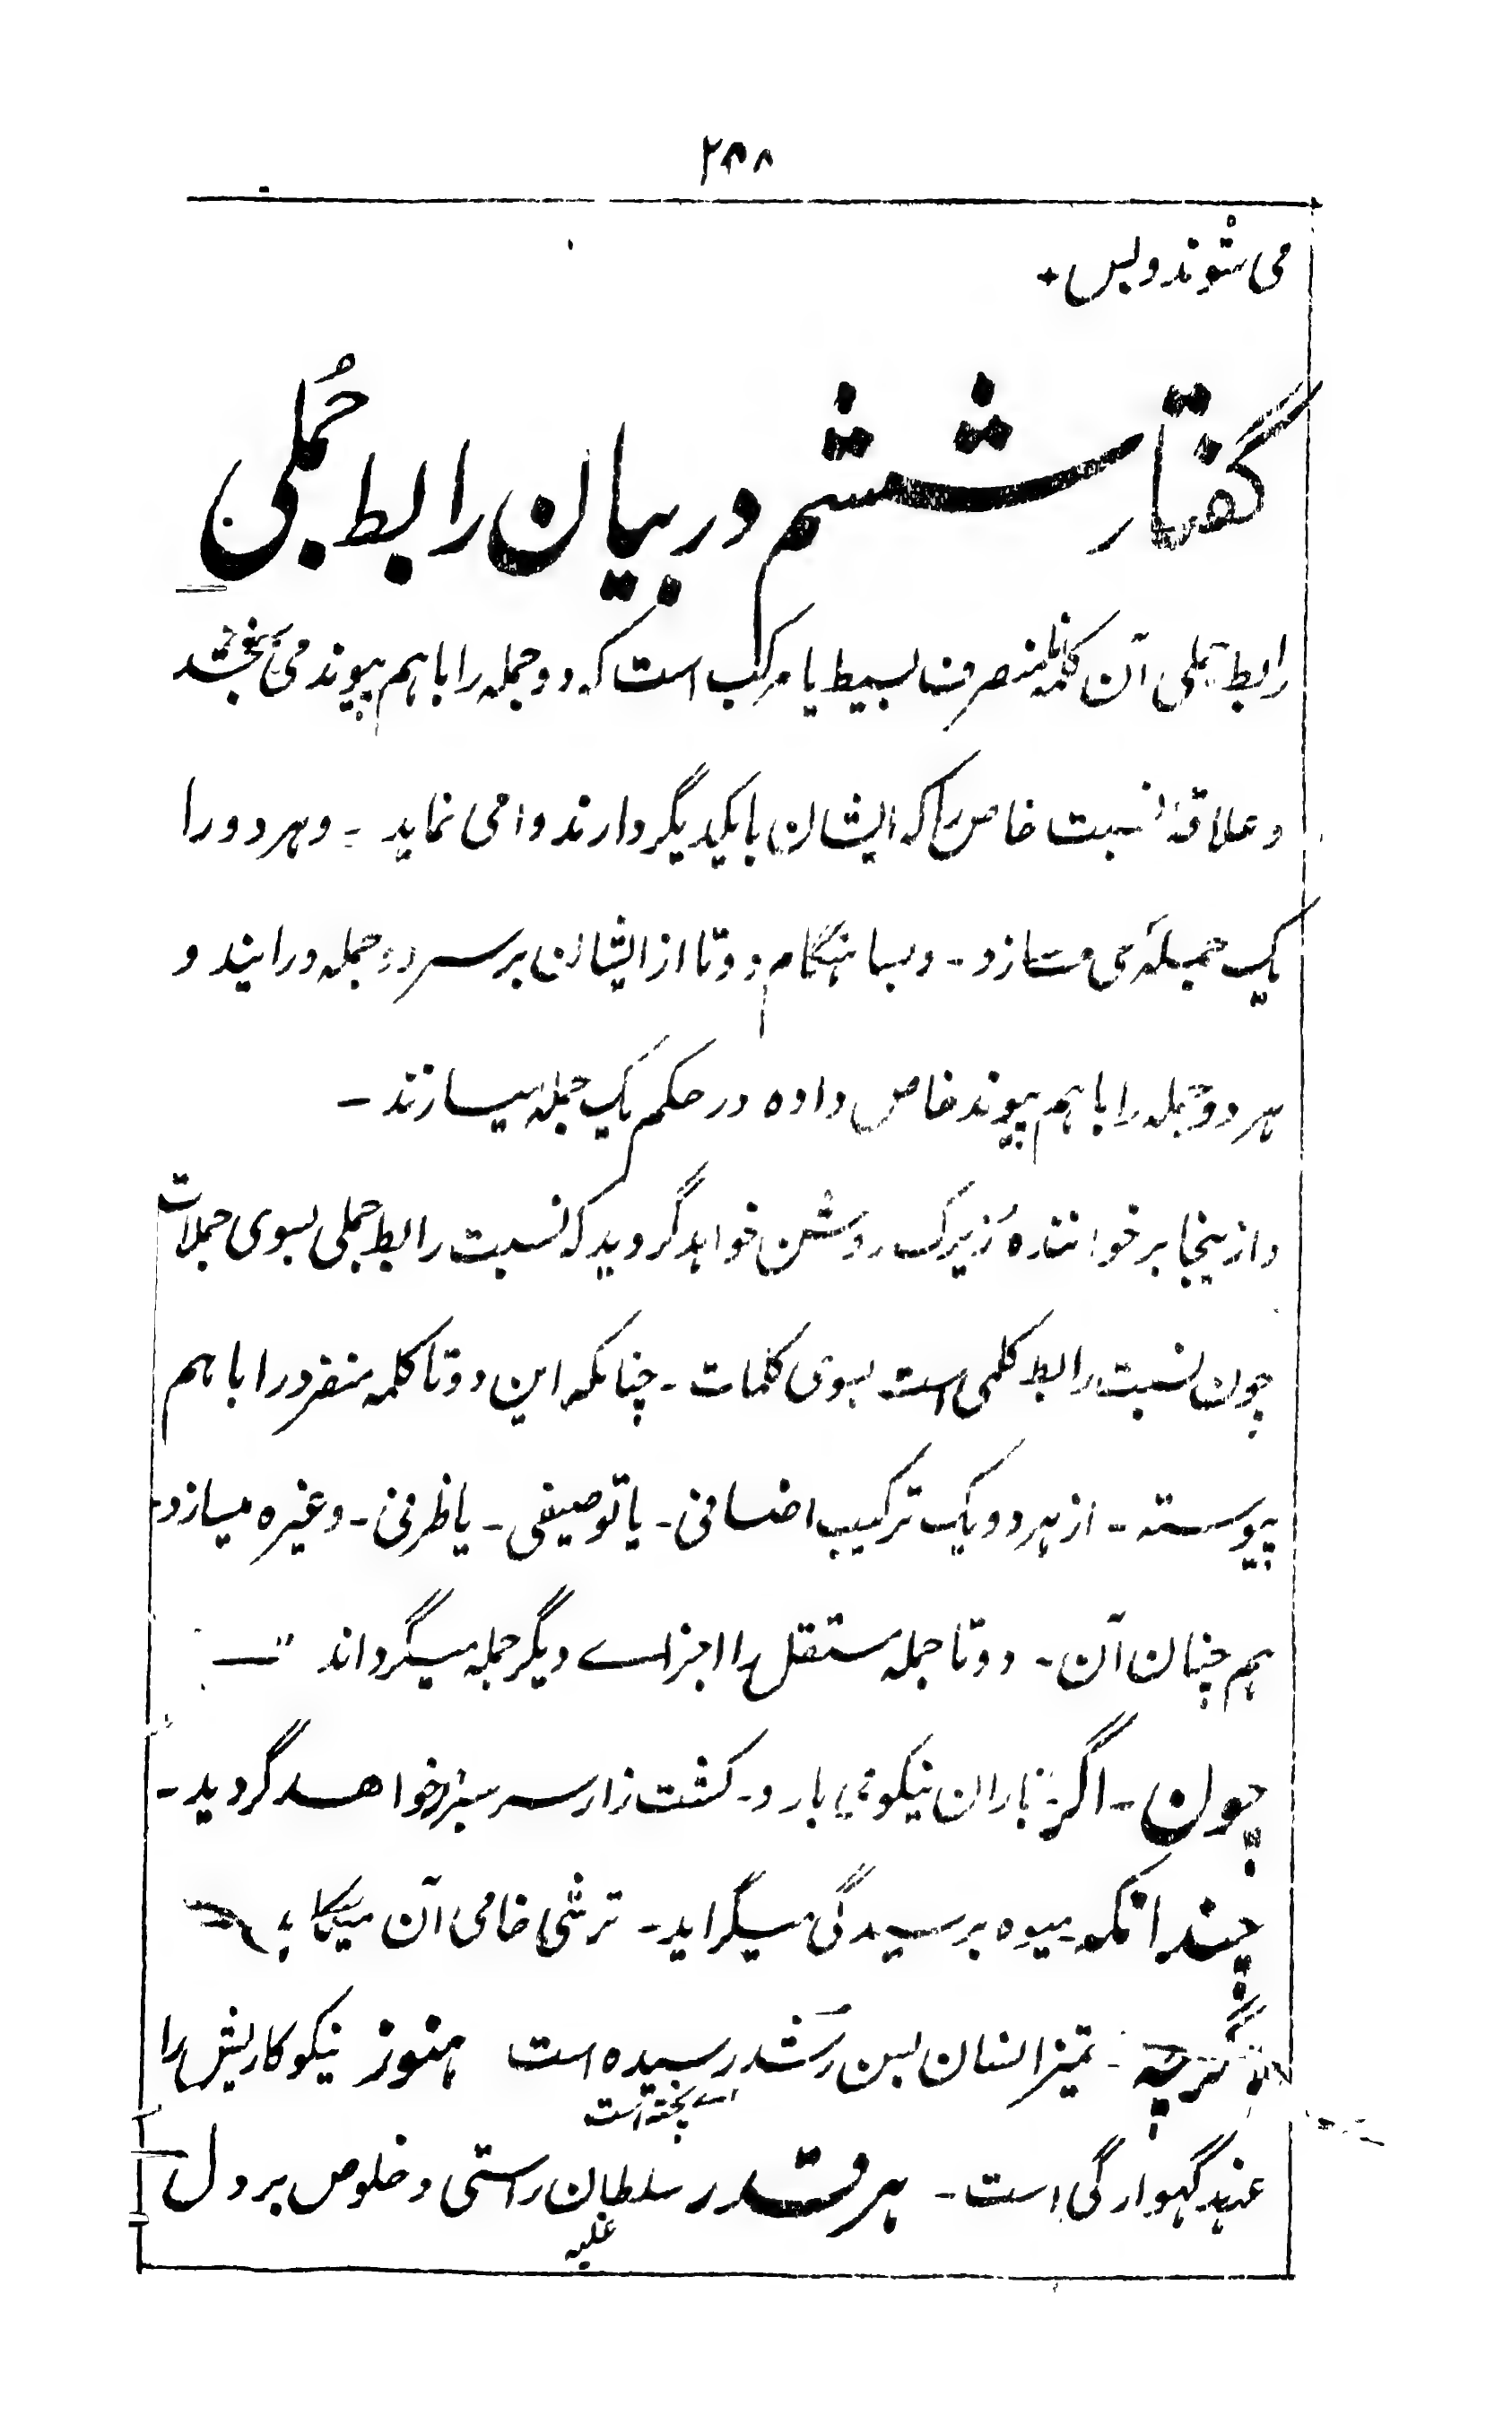 ۲۸۸
می شوند و بس +
گفتار ششم در بیان رابط جُملی
رابط جملی آن کلمۂ نامتصرف بسیط یا مرکب است که دو جمله را با هم پیوند می بخشد
و علاقۂ نسبت خاص را که ایشان با یکدیگر دارند وا می نماید - و هر دو را
یک جملۂ می سازد - و بسا هنگام دو تا از ایشان بر سر دو جمله در ایند و
هر دو جمله را با هم پیوند خاص داده در حکم یک جمله میسازند -
و ازینجا بر خوانندۂ زیرک روشن خواهد گردید که نسبت رابط جملی بسوی جملات
چون نسبت رابط کلمی است بسوی کلمات - چنانکه این دو تا کلمه منفرد را با هم
پیوسته - از هر دو یک ترکیب اضافی - یا توصیفی - یا ظرفی - و غیره میسازد -
هم چنان آن - دو تا جمله مستقل را اجزاے دیگر جمله میگرداند -
چون - اگر باران نیکو می بارد - کشت زار سرسبز خواهد گردید -
چندانکه میوه برسیدگی میگراید - ترشی خامی آن میکاهد
اگرچه - تمیز انسان بسن رُشد رسیده است هنوز نیکو کاریش را
اے پخته است
عهد گهوارگی است - هر قدر سلطان راستی و خلوص بر دل
غلبه